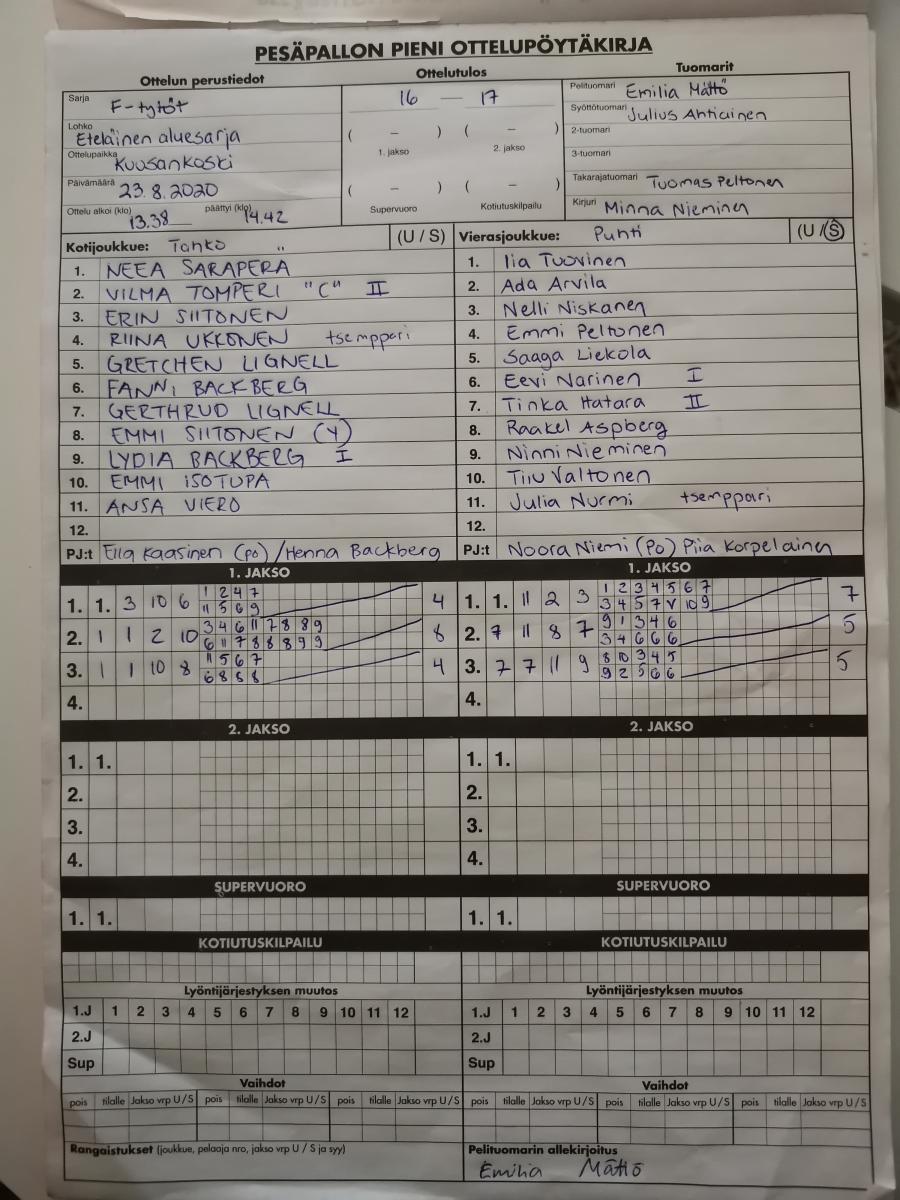 PESÄPALLON PIENI OTTELUPÖYTÄKIRJA
Ottelun perustiedot
Ottelutulos
Tuomarit
Sarja F-tytöt
Lohko Eteläinen aluesarja
Ottelupaikka Kuusankoski
Päivämäärä 23.8.2020
Ottelu alkoi (klo) 13.38 päättyi (klo) 14.42
16 — 17
( – ) ( – )
1. jakso 2. jakso
( – ) ( – )
Supervuoro Kotiutuskilpailu
Pelituomari Emilia Mättö
Syöttötuomari Julius Ahtiainen
2-tuomari
3-tuomari
Takarajatuomari Tuomas Peltonen
Kirjuri Minna Nieminen
Kotijoukkue: Tahko (U / S)
1. NEEA SARAPERA
2. VILMA TOMPERI "C" II
3. ERIN SIITONEN
4. RIINA UKKONEN tsemppari
5. GRETCHEN LIGNELL
6. FANNI BACKBERG
7. GERTHRUD LIGNELL
8. EMMI SIITONEN (Y)
9. LYDIA BACKBERG I
10. EMMI ISOTUPA
11. ANSA VIERO
12.
PJ:t Ella Kaasinen (po) / Henna Backberg
Vierasjoukkue: Puhti (U / S)
1. Iia Tuovinen
2. Ada Arvila
3. Nelli Niskanen
4. Emmi Peltonen
5. Saaga Liekola
6. Eevi Narinen I
7. Tinka Hatara II
8. Raakel Aspberg
9. Ninni Nieminen
10. Tiiu Valtonen
11. Julia Nurmi tsemppari
12.
PJ:t Noora Niemi (Po) Piia Korpelainen
1. JAKSO
1. 1. 3 10 6 1 2 4 7 4
11 5 6 9
2. 1 1 2 10 3 4 6 11 7 8 8 9 8
6 11 7 8 8 8 9 9
3. 1 1 10 8 11 5 6 7 4
6 8 8 8
4.
1. JAKSO
1. 1. 11 2 3 1 2 3 4 5 6 7 7
3 4 5 7 V 10 9
2. 7 11 8 7 9 1 3 4 6 5
3 4 6 6 6
3. 7 7 11 9 8 10 3 4 5 5
9 2 5 6 6
4.
2. JAKSO
1. 1.
2.
3.
4.
2. JAKSO
1. 1.
2.
3.
4.
SUPERVUORO
1. 1.
SUPERVUORO
1. 1.
KOTIUTUSKILPAILU
KOTIUTUSKILPAILU
Lyöntijärjestyksen muutos
1.J 1 2 3 4 5 6 7 8 9 10 11 12
2.J
Sup
Lyöntijärjestyksen muutos
1.J 1 2 3 4 5 6 7 8 9 10 11 12
2.J
Sup
Vaihdot
pois tilalle Jakso vrp U / S pois tilalle Jakso vrp U / S pois tilalle Jakso vrp U / S
Vaihdot
pois tilalle Jakso vrp U / S pois tilalle Jakso vrp U / S pois tilalle Jakso vrp U / S
Rangaistukset (joukkue, pelaaja nro, jakso vrp U / S ja syy)
Pelituomarin allekirjoitus
Emilia Mättö